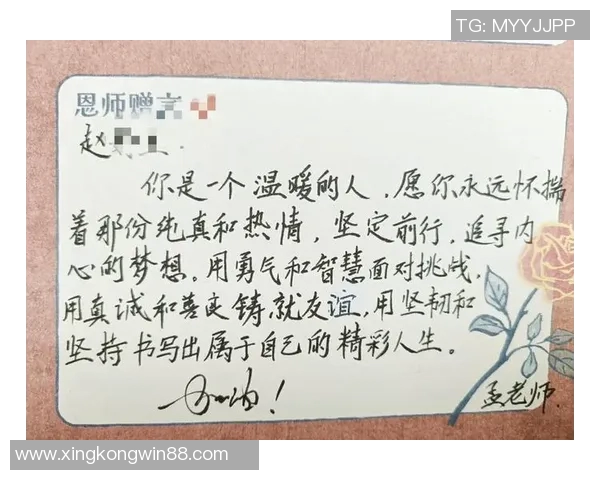 TG: MYYJJPP
恩师赠言
赵
你是一个温暖的人，愿你永远怀揣
着那份纯真和热情，坚定前行，追寻内
心的梦想。用勇气和智慧面对挑战，
用真诚和善良铸就友谊，用坚韧和
坚持书写出属于自己的精彩人生。
加油！
孟老师.
www.xingkongwin88.com